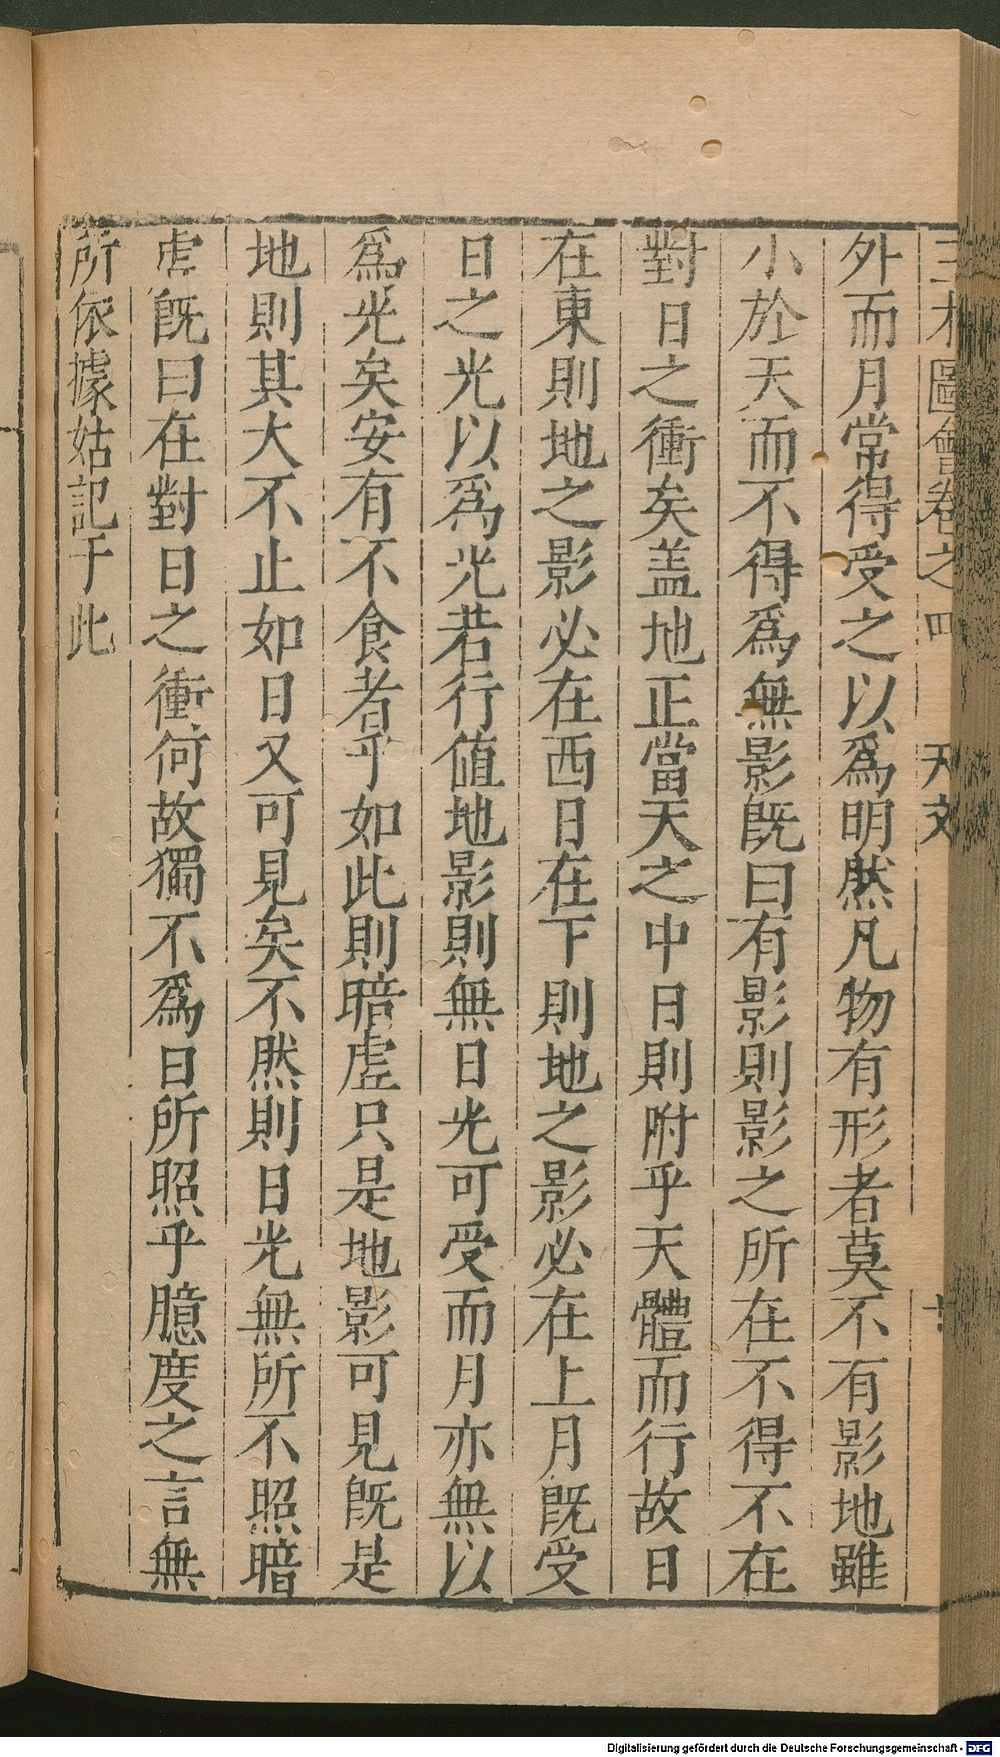 三才圖會卷之四　天文
外而月常得受之以爲明然凡物有形者莫不有影地雖
小於天而不得爲無影既曰有影則影之所在不得不在
對日之衝矣盖地正當天之中日則附乎天體而行故日
在東則地之影必在西日在下則地之影必在上月既受
日之光以爲光若行值地影則無日光可受而月亦無以
爲光矣安有不食者乎如此則暗虛只是地影可見既是
地則其大不止如日又可見矣不然則日光無所不照暗
虛既曰在對日之衝何故獨不爲日所照乎臆度之言無
所依據姑記于此
Digitalisierung gefördert durch die Deutsche Forschungsgemeinschaft - DFG